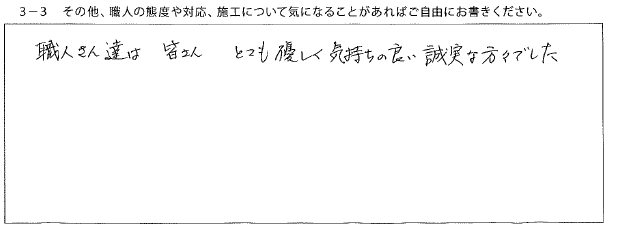 3－3　その他、職人の態度や対応、施工について気になることがあればご自由にお書きください。
職人さん達は　皆さん　とても優しく気持ちの良い誠実な方々でした